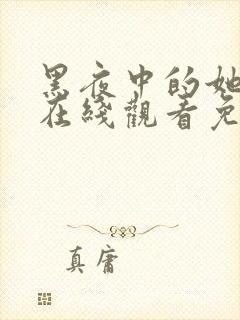 黑夜中的她
在綫觀看免
真庸